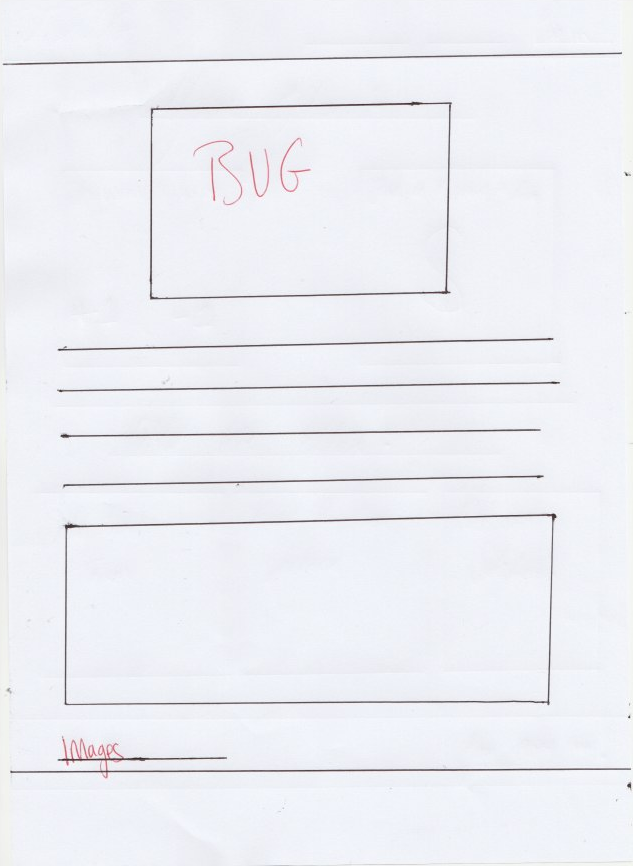 BUG
Images